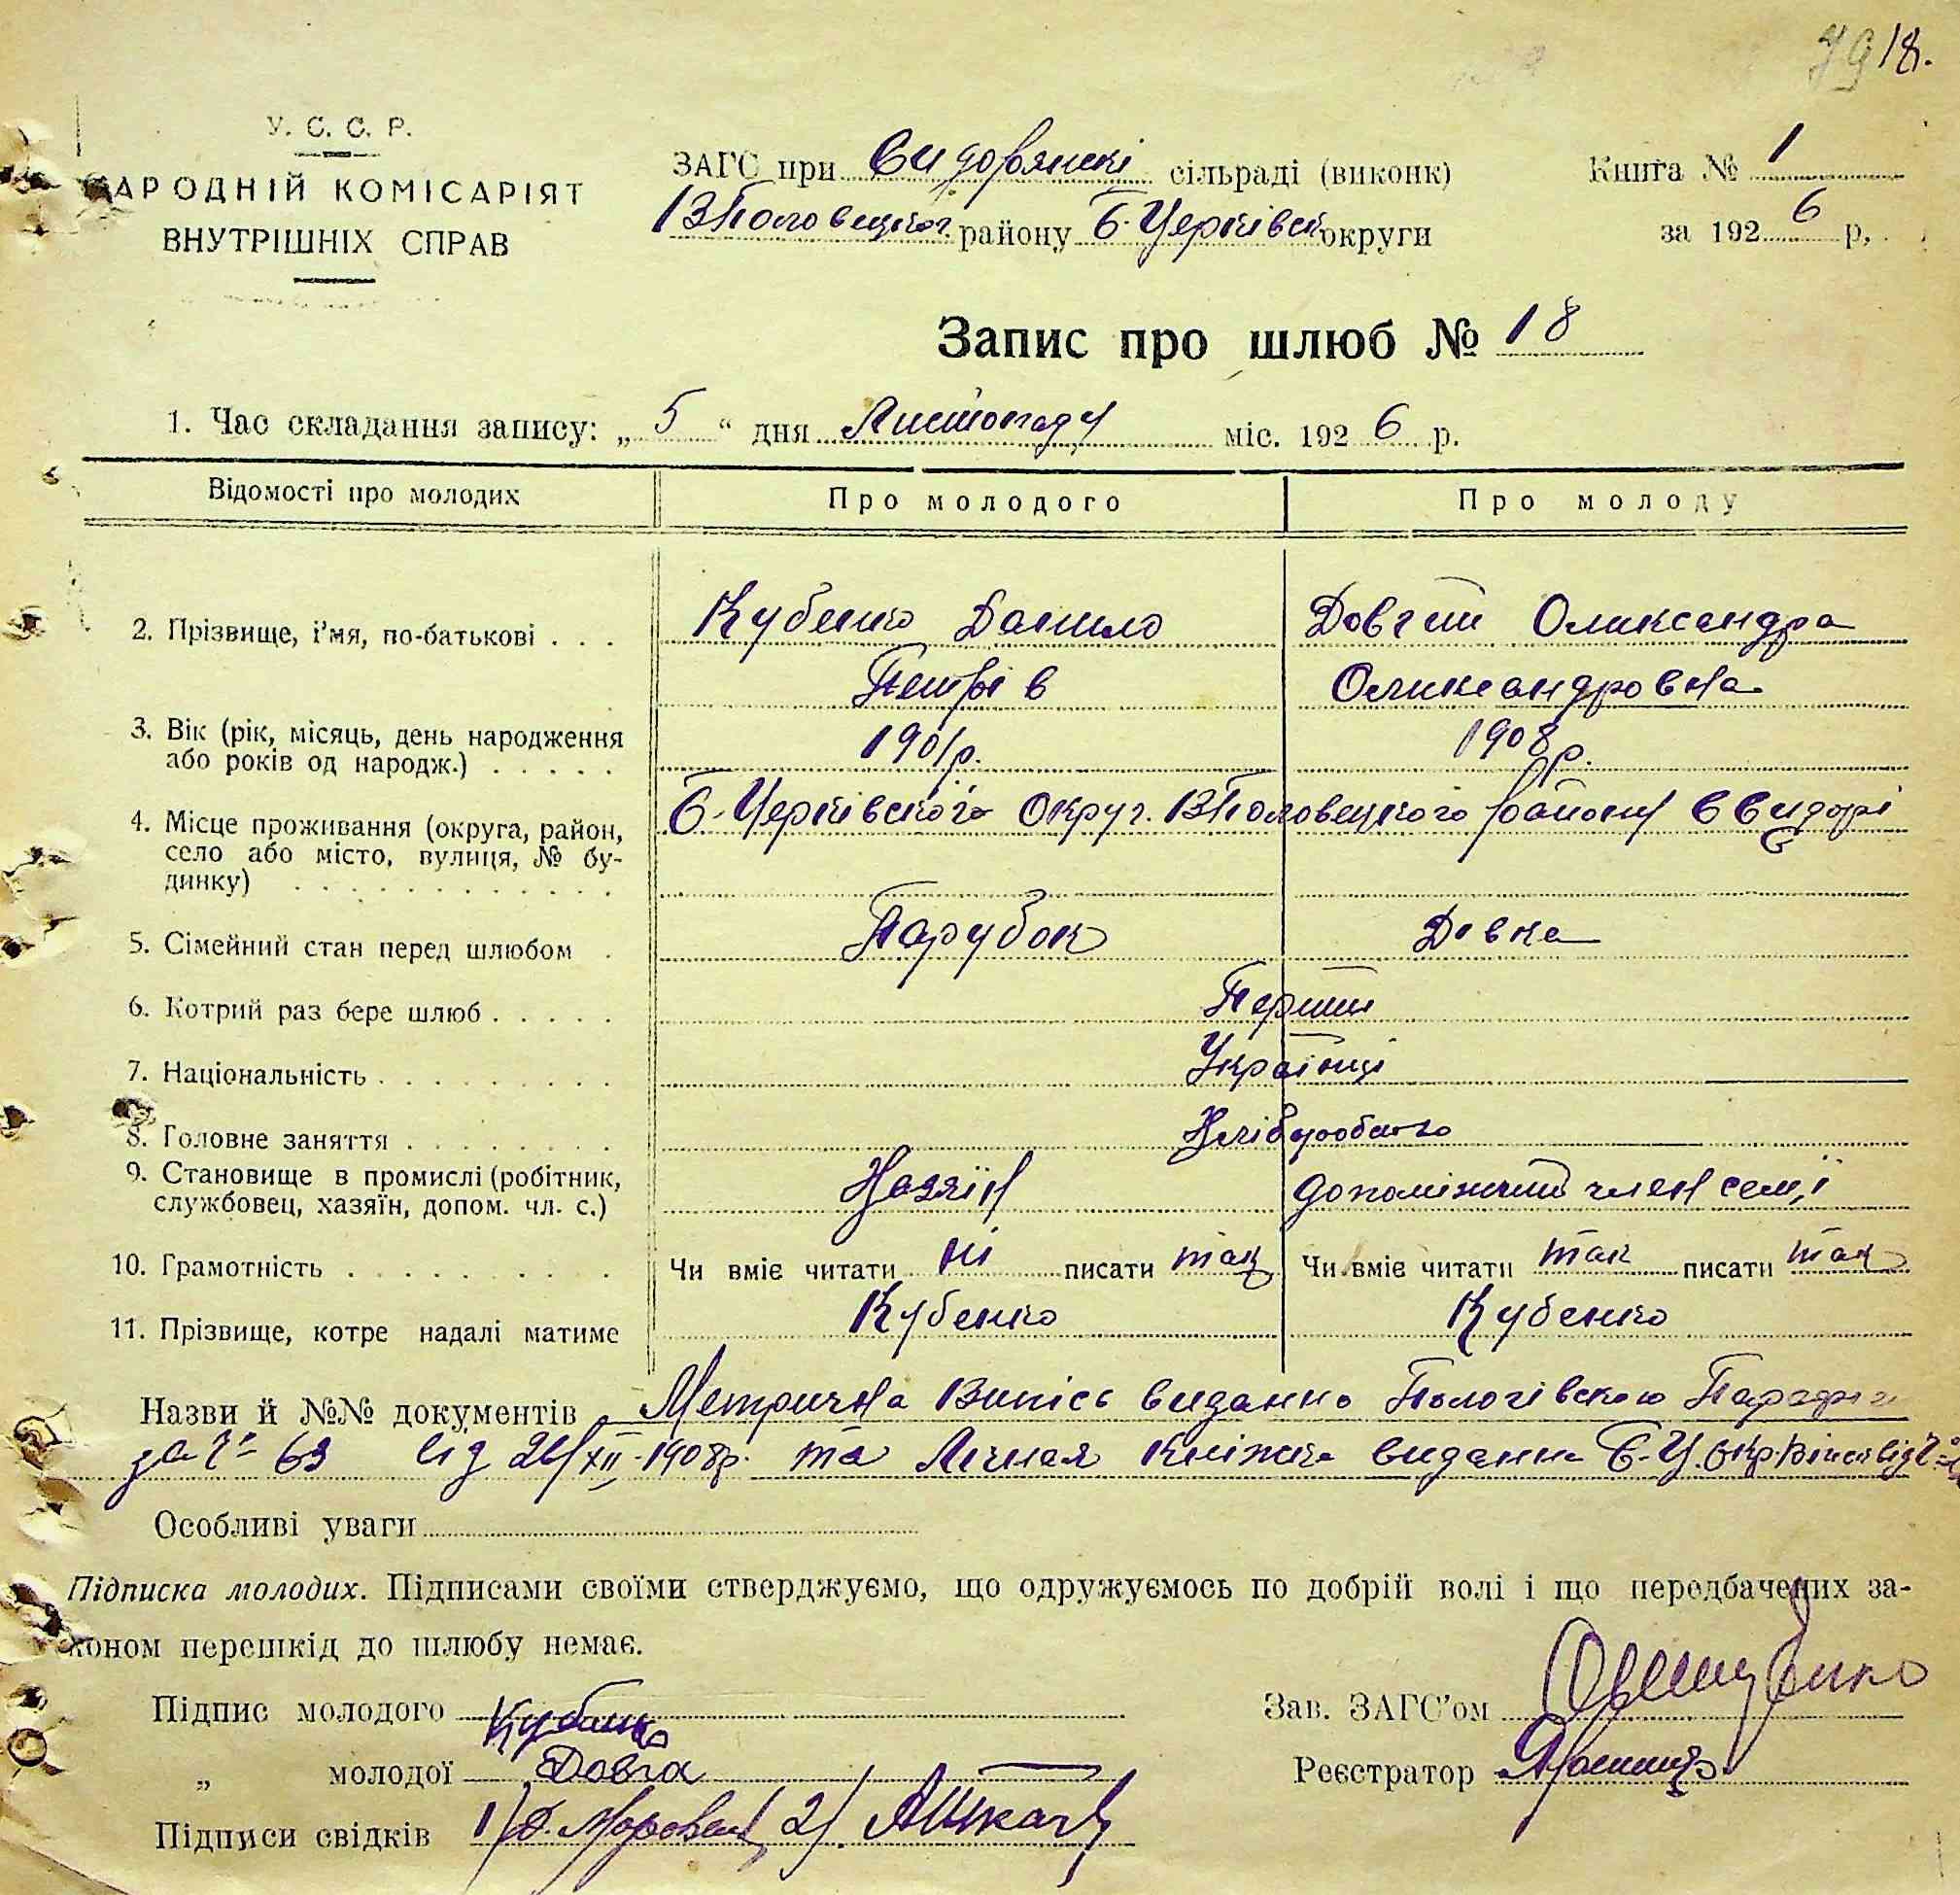 18.
У. С. С. Р.
НАРОДНІЙ КОМІСАРІЯТ
ВНУТРІШНІХ СПРАВ
ЗАГС при сільраді (виконк)
району Б. Церківськ округи
Книга № 1
за 1926 р,
Запис про шлюб № 18
1. Час складання запису: „ 5 “ дня Листопаду міс. 1926 р.
Відомості про молодих Про молодого Про молоду
2. Прізвище, і'мя, по-батькові . . . Кубенко Данило Довгий Олександра
Петрів Олександровна
3. Вік (рік, місяць, день народження
або років од народж.) . . . . . 1901р. 1908р.
4. Місце проживання (округа, район,
село або місто, вулиця, № бу-
динку) . . . . . . . . . . . . Б-Церківського Округ. ВПоловецкого району
5. Сімейний стан перед шлюбом . Парубок Дівка
6. Котрий раз бере шлюб . . . . . Перший
7. Національність . . . . . . . . . Українці
8. Головне заняття . . . . . . . . Хліборобство
9. Становище в промислі (робітник,
службовец, хазяїн, допом. чл. с.) Хазяїн допоміжний член семії
10. Грамотність . . . . . . . . . Чи вміє читати ні писати так Чи вміє читати так писати так
11. Прізвище, котре надалі матиме Кубенко Кубенко
Назви й №№ документів Метрична Випісь виданна
63 від 26/XII-1908р. та Лічная Кніжка виданна Б-Ц.
Особливі уваги
Підписка молодих. Підписами своїми стверджуємо, що одружуємось по добрій волі і що передбачених за-
коном перешкід до шлюбу немає.
Підпис молодого Кубенко
„ молодої Довга
Підписи свідків 1) 2) А Ткач
Зав. ЗАГС'ом
Реєстратор